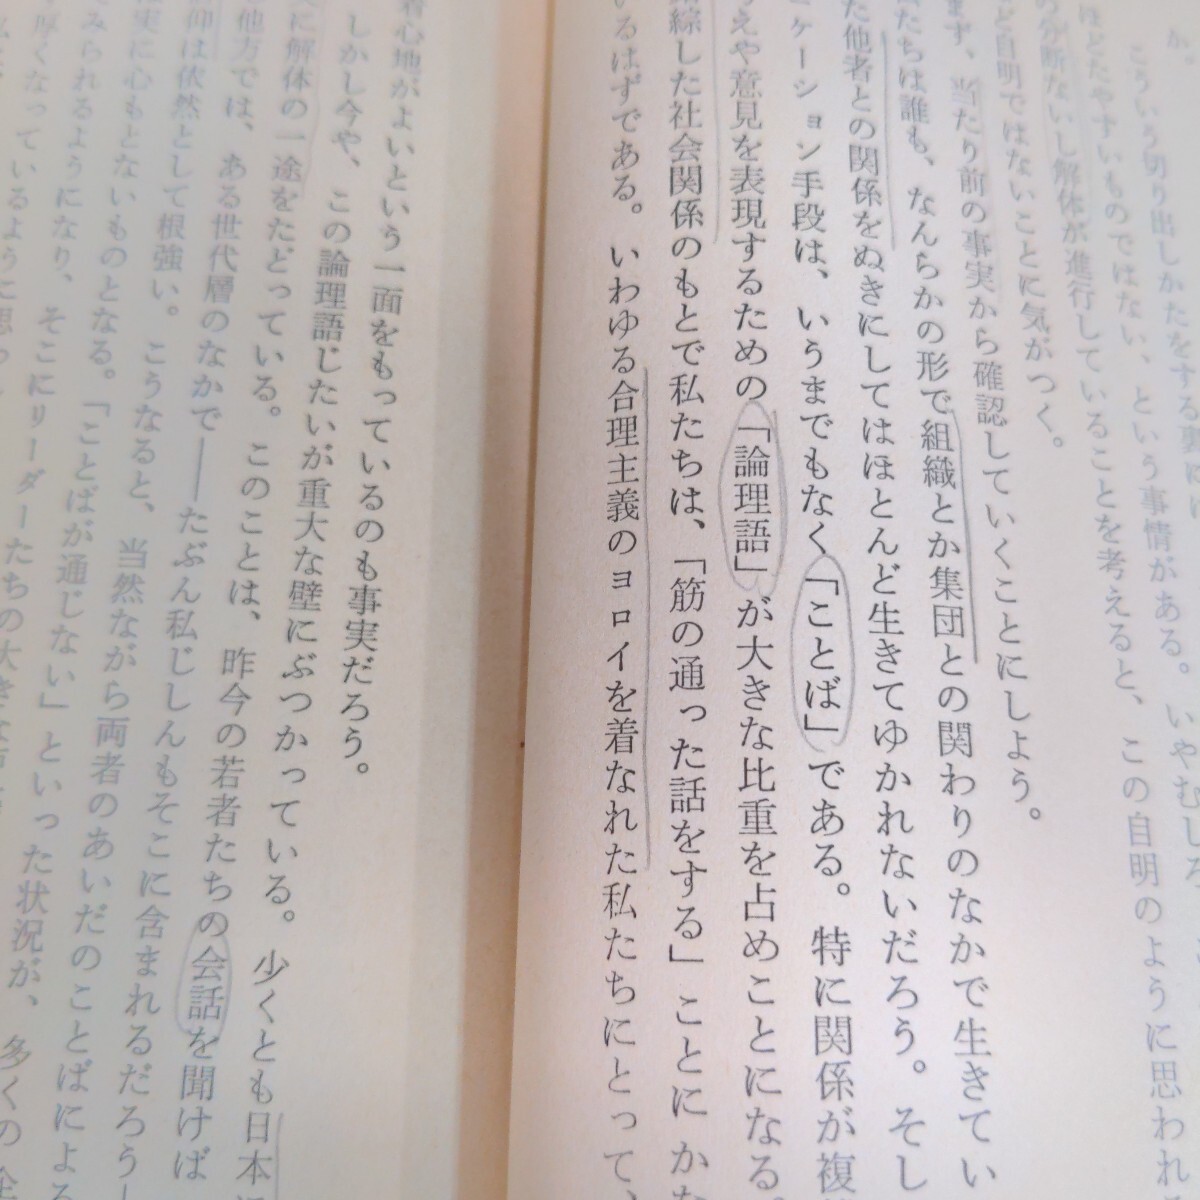 か。
こういう切り出しかたをする裏には
ほどたやすいものではない、という事情がある。いやむしろ
の分断ないし解体が進行していることを考えると、この自明のように思われ
ど自明ではないことに気がつく。
まず、当たり前の事実から確認していくことにしよう。
たちは誰も、なんらかの形で組織とか集団との関わりのなかで生きてい
た他者との関係をぬきにしてはほとんど生きてゆかれないだろう。そし
ケーション手段は、いうまでもなく「ことば」である。特に関係が複
えや意見を表現するための「論理語」が大きな比重を占めことになる。
綜した社会関係のもとで私たちは、「筋の通った話をする」ことにかな
いるはずである。いわゆる合理主義のヨロイを着なれた私たちにとって、
着心地がよいという一面をもっているのも事実だろう。
しかし今や、この論理語じたいが重大な壁にぶつかっている。少くとも日本
に解体の一途をたどっている。このことは、昨今の若者たちの会話を聞けば
他方では、ある世代層のなかで――たぶん私じしんもそこに含まれるだろう
信仰は依然として根強い。こうなると、当然ながら両者のあいだのことばによる
実に心もとないものとなる。「ことばが通じない」といった状況が、多くの
みられるようになり、そこにリーダーたちの大きな
厚くなっているように思